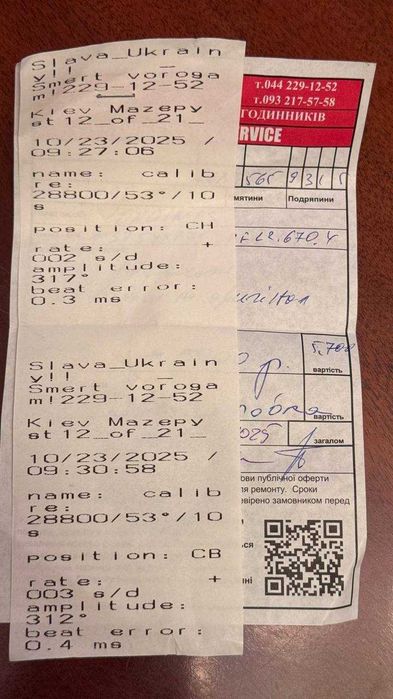 Slava_Ukrain
y!! _
Smert vorogа
m!229-12-52
Kiev Mazepy
st12_of_21_
10/23/2025 /
09:27:06
name: calib
re:
28800/53°/10
s
position: CH
rate: +
002 s/d
amplitude:
317°
beat error:
0.3 ms
Slava_Ukrain
y!!
Smert voroga
m!229-12-52
Kiev Mazepy
st12_of_21_
10/23/2025 /
09:30:58
name: calib
re:
28800/53°/10
s
position: CB
rate: +
003 s/d
amplitude:
312°
beat error:
0.4 ms
т.044 229-12-52
т.093 217-57-58
ГОДИННИКІВ
RVICE
565 931
мятини Подряпини
670.4
5,700
вартість
вартість
025
загалом
ови публічної оферти
ля ремонту. Сроки
евірено замовником перед
ься
ні